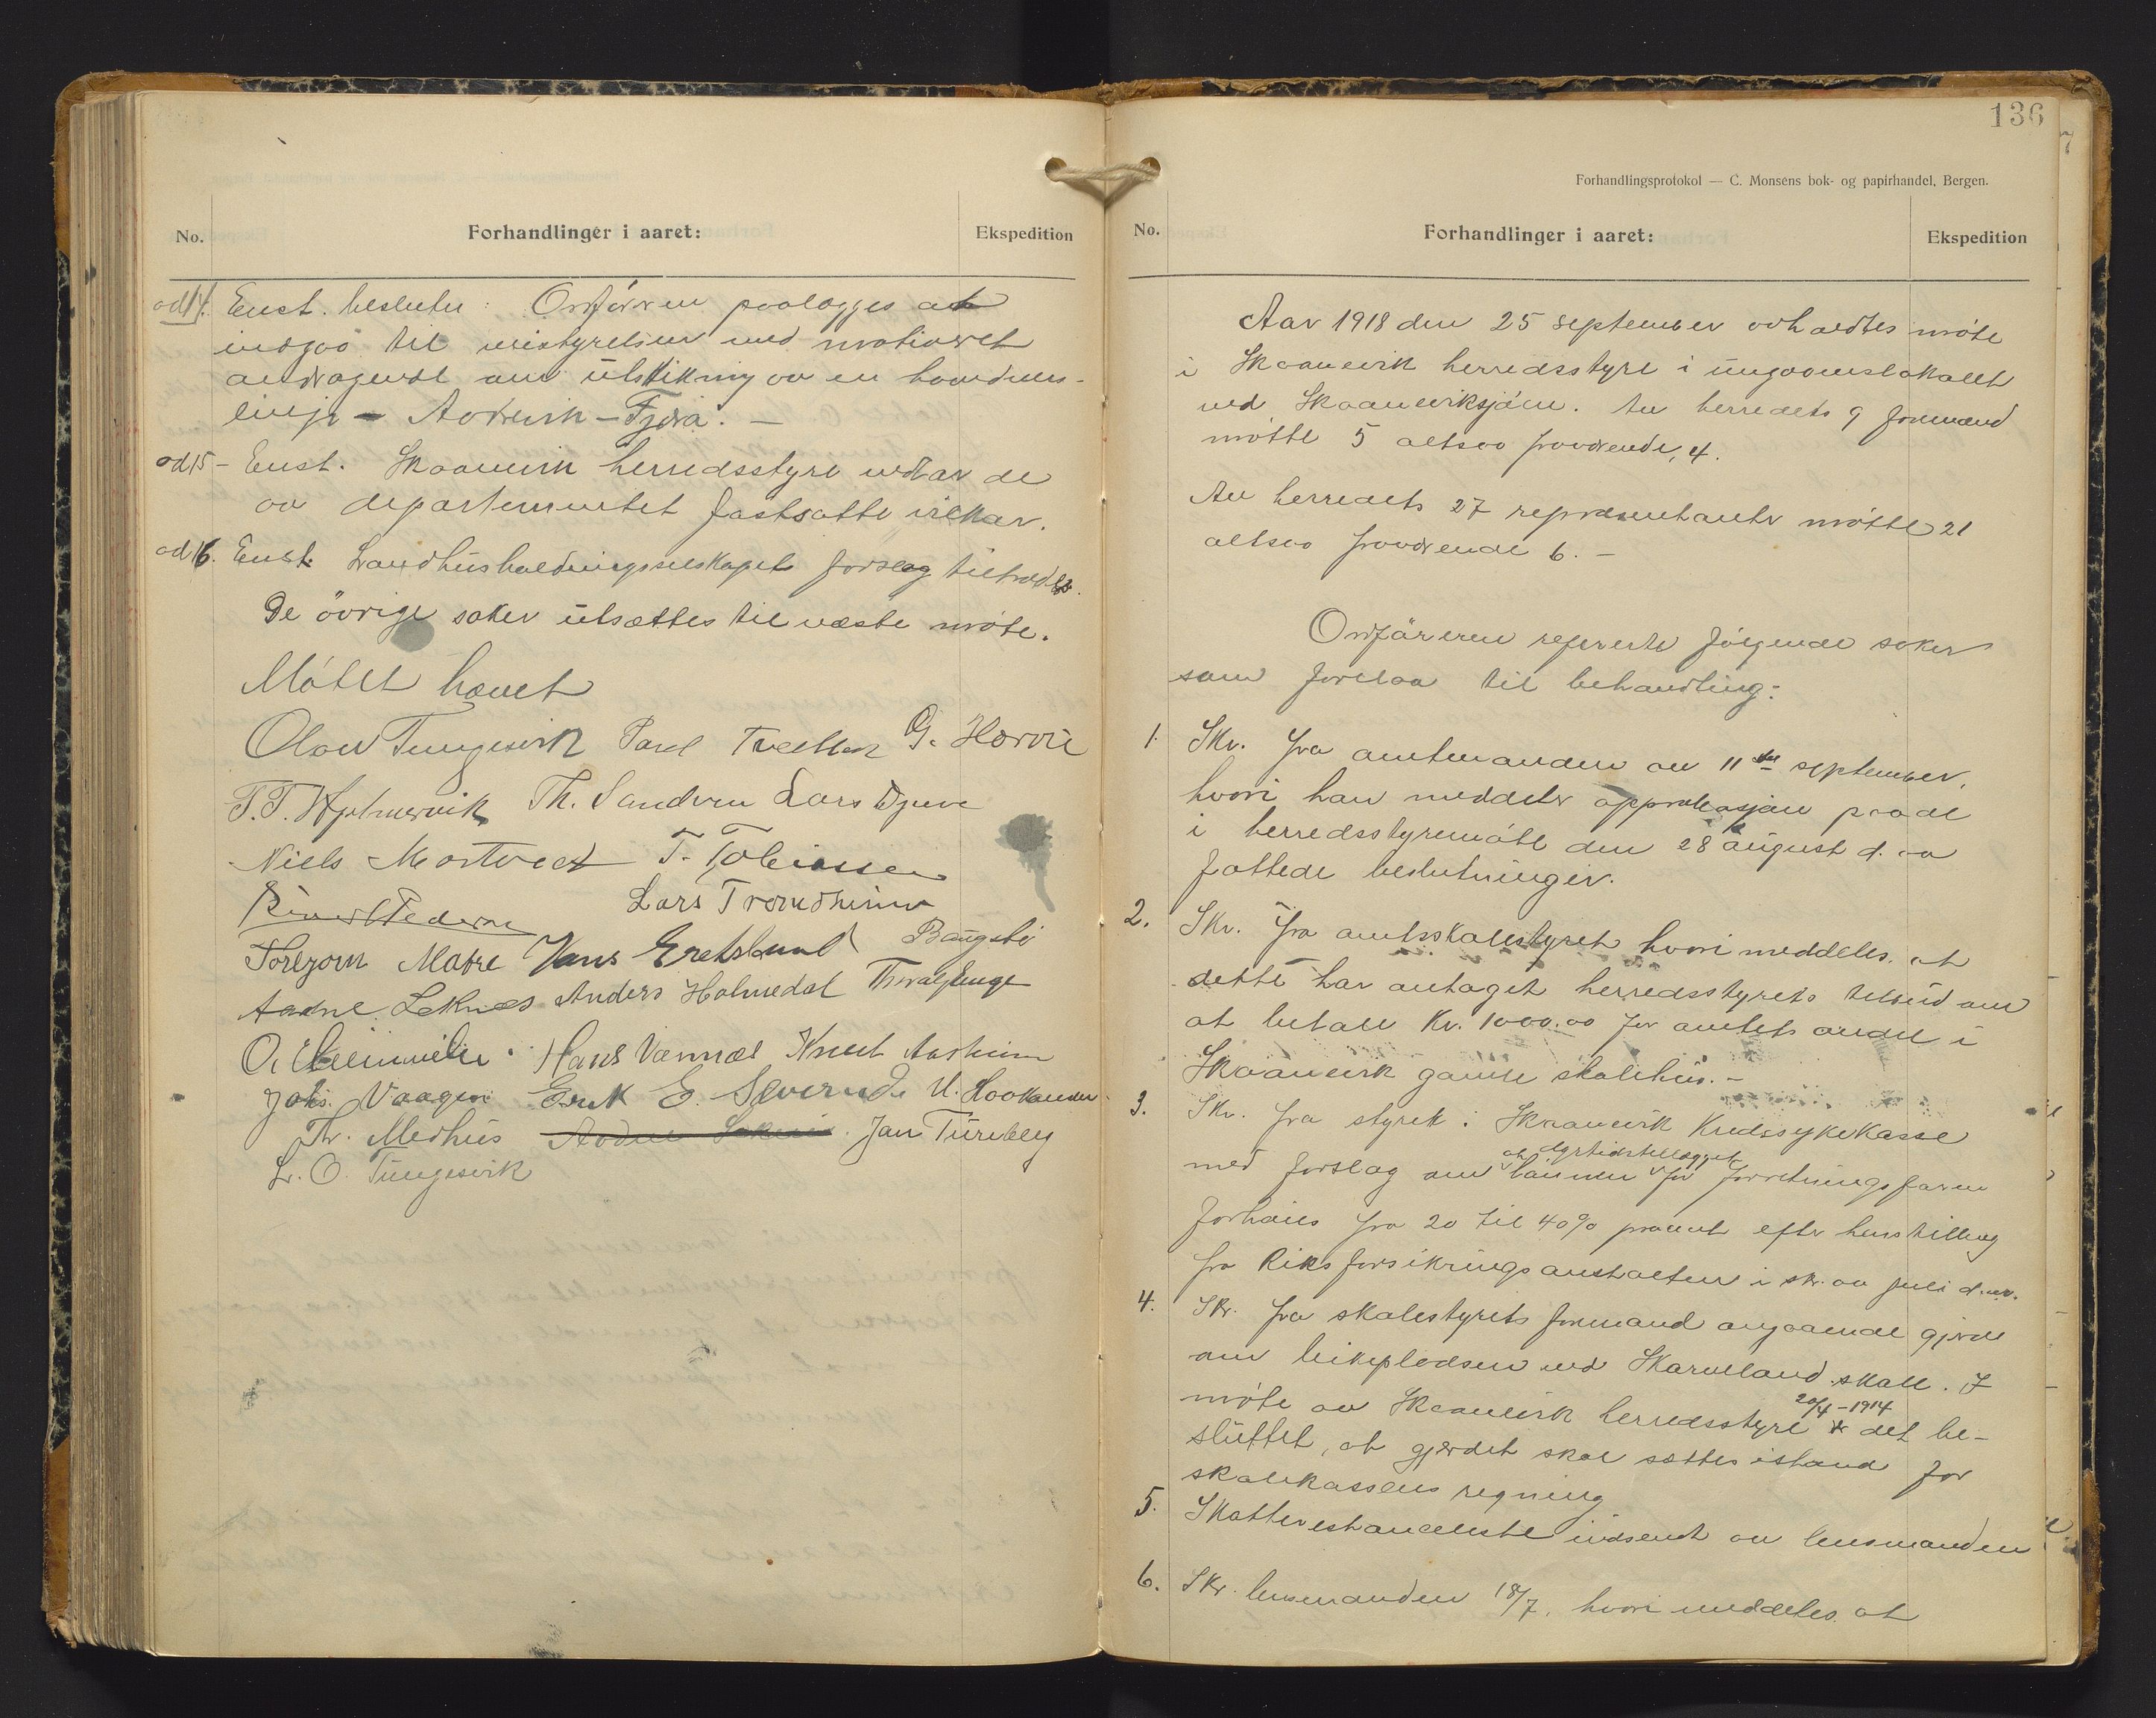 No.
Forhandlinger i aaret:
Ekspedition
ad 14. Enst. besluttn: Ordføreren paalægges at
indgaa til veistyrelsen med motiveret
andragende om utstikning av en hovedvei-
linje - Aakvik - Fjæra. -
ad 15 - Enst. Skaanevik herredsstyre vedtar de
av departementet fastsatte vilkaar.
ad 16. Enst. Landhusholdningsselskapets forslag tiltrædes.
De øvrige saker utsættes til næste møte.
Møtet hævet
Olav Tungesvik Paul Tveiten G. Harvie
T. T. Hjelmervik Th. Sandven Lars Djuve
Niels Mortveet T. Tobiassen
Pedersen Lars Trondheim
Torbjørn Matre Hans Baugstø
Aadne Leknes Anders Holmedal
O. Hans Vannes Knut Aasheim
Johs. Vaagen Erik E. Severud
Th. Medhus Jan Tureberg
L. O. Tungesvik
136
Forhandlingsprotokol — C. Monsens bok- og papirhandel, Bergen.
No.
Forhandlinger i aaret:
Ekspedition
Aar 1918 den 25 september avholdtes møte
i Skaanevik herredsstyre i ungdomslokalet
ved Skaaneviksjøen. Av herredets 9 formænd
møtte 5 altsaa fraværende, 4.
Av herredets 27 repræsentanter møtte 21
altsaa fraværende 6. -
Ordføreren refererte følgende saker
som forelaa til behandling:
1. Skr. fra amtmanden av 11te september,
hvori han meddeler approbasjon paa de
i herredsstyremøte den 28 august d. aa
fattede beslutninger.
2. Skr. fra amtsskolestyret hvori meddeles at
dette har antaget herredsstyrets tilbud om
at betale Kr. 1000.00 for amtets andel i
Skaanevik gamle skolehus. -
3. Skr. fra styret i Skaanevik Kredssykekasse
med forslag om at dyrtidstillægget lønnen for forretningsføreren
forhøies fra 20 til 40% procent efter henstilling
fra Riksforsikringsanstalten i skr. av juli d. aa.
4. Skr. fra skolestyrets formand angaaende gjerde
om leikepladsen ved Skarveland skole. I
møte av Skaanevik herredsstyre 20/4-1914 det be-
sluttet, at gjerdet skal sættes istand for
skolekassens regning
5. Skatterestanceliste indsendt av lensmanden
6. Skr. lensmanden 18/7, hvori meddeles at